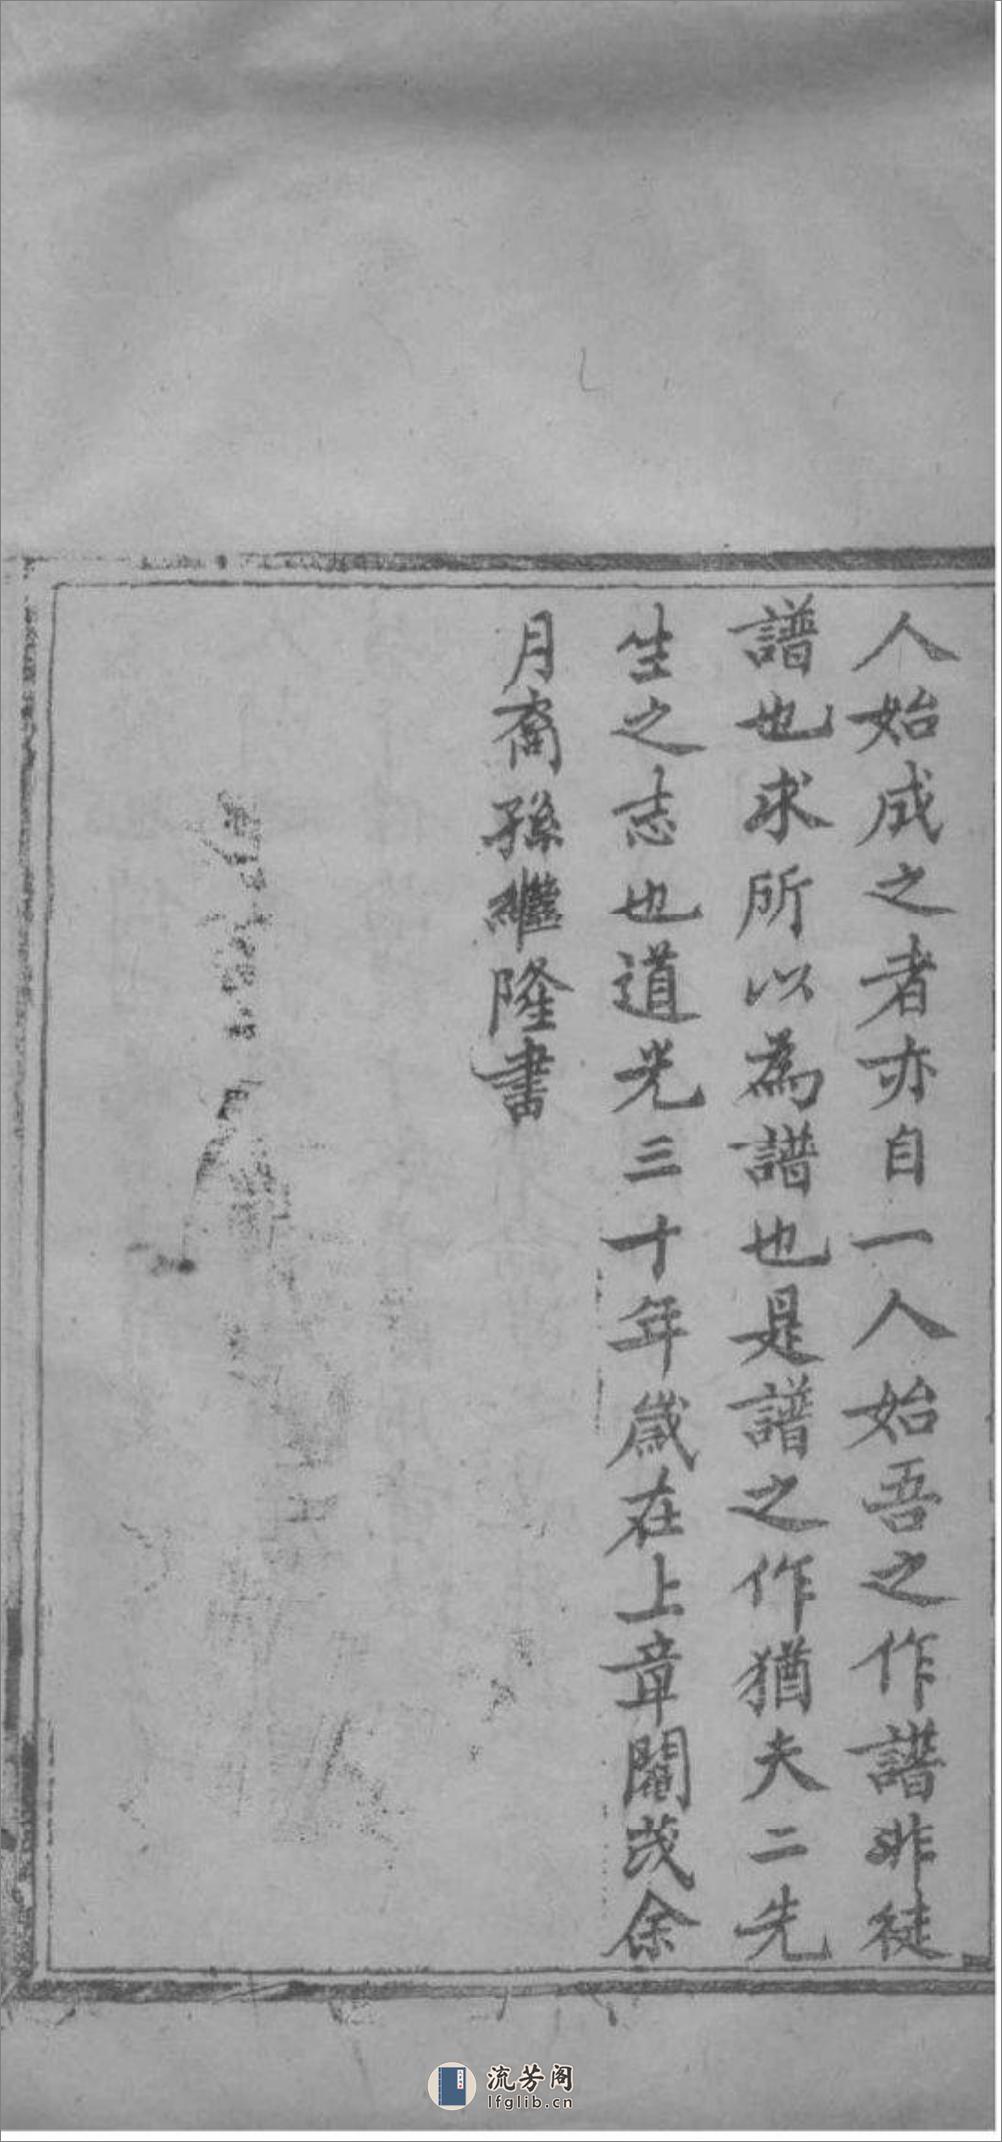 人始成之者亦自一人始吾之作譜非徒
譜也求所以為譜也是譜之作猶夫二先
生之志也道光三十年歲在上章閹茂余
月裔孫繼隆書
流芳阁
lfglib.cn